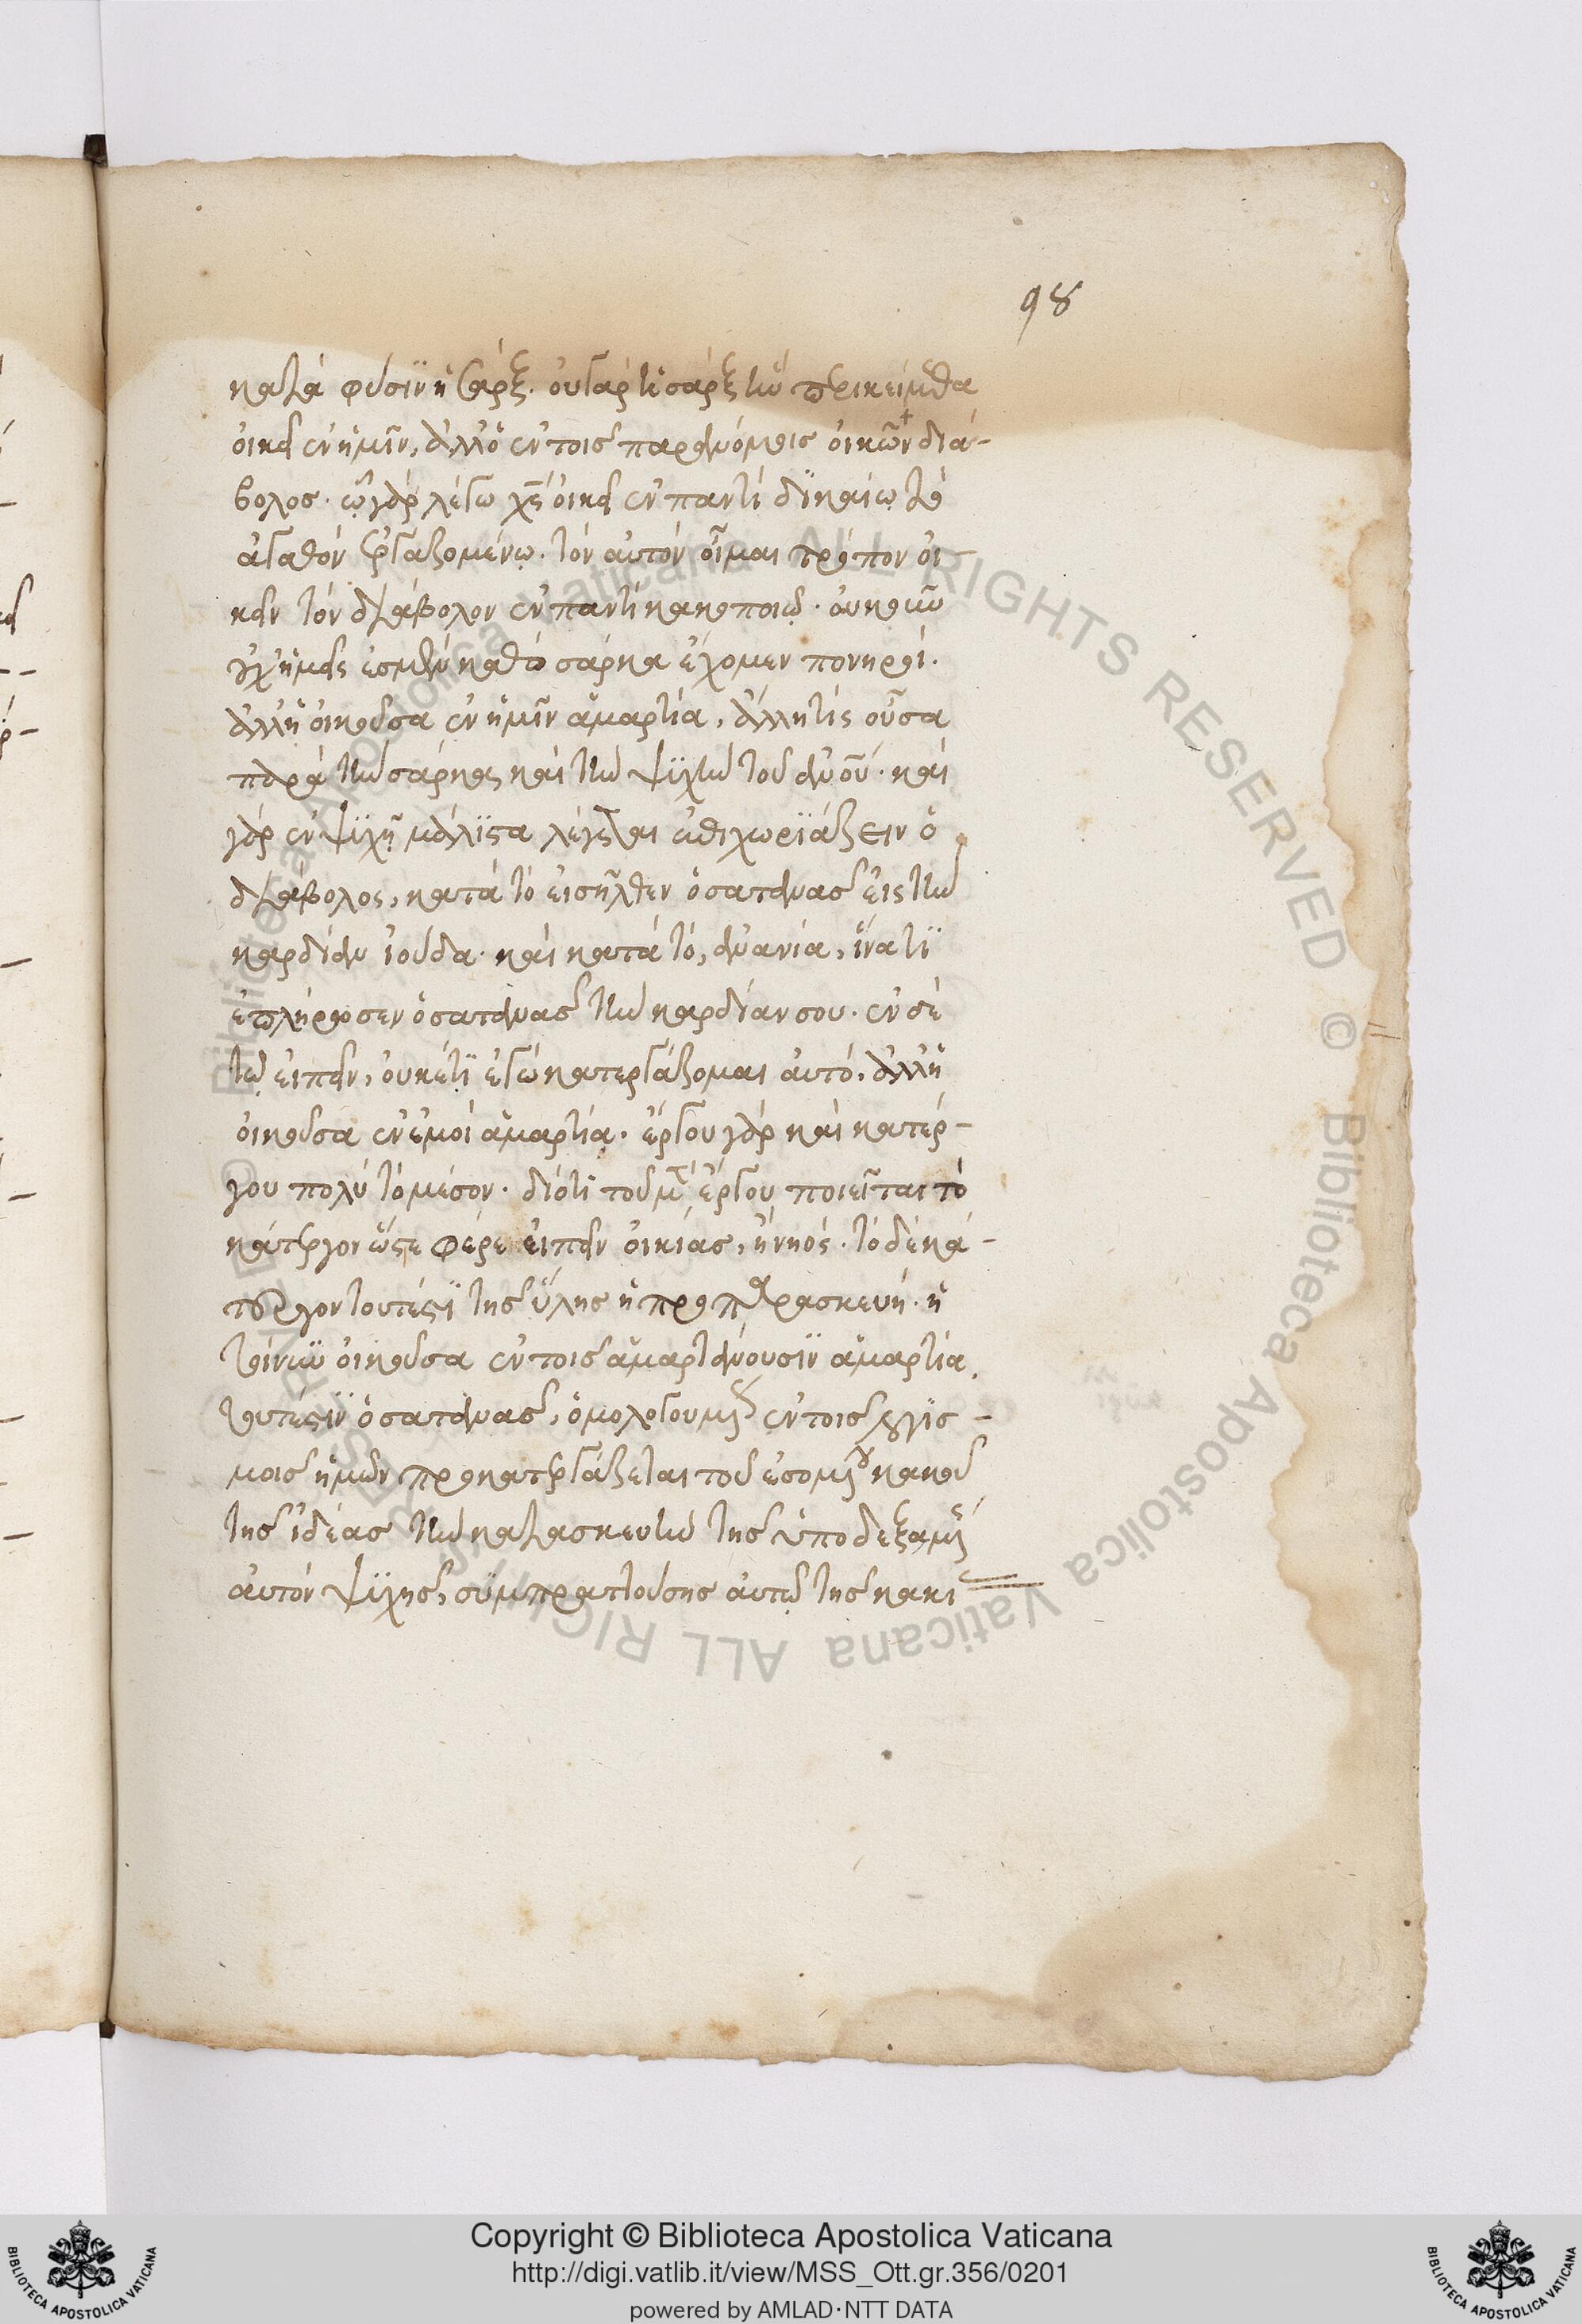 98
κατὰ φύσιν ἡ σάρξ. οὐ γάρ τι σάρξ ἣν περικείμεθα
οἰκεῖ ἐν ἡμῖν, ἀλλ' ὁ ἐν τοῖς παρανόμοις οἰκῶν διά-
βολος. ὡς γὰρ λέγω χ̅ς̅ οἰκεῖ ἐν παντὶ δικαίω τὸ
ἀγαθὸν ἐργαζομένω. τὸν αὐτὸν οἶμαι τρόπον οἰ
κεῖν τὸν διάβολον ἐν παντὶ κακοποιῶ. οὐκοῦν
οὐχ ἡμεῖς ἐσμὲν καθὸ σάρκα ἔχομεν πονηροί.
ἀλλ' ἡ οἰκοῦσα ἐν ἡμῖν ἁμαρτία, ἄλλη τίς οὖσα
παρὰ τὴν σάρκα καὶ τὴν ψυχὴν τοῦ ἀνοῦ. καὶ
γὰρ ἐν ψυχῇ μάλιστα λέγεται ἐπιχωριάζειν ὁ
διάβολος, κατὰ τὸ εἰσῆλθεν ὁ σατανᾶς εἰς τὴν
καρδίαν ἰούδα. καὶ κατὰ τό, ἀνανία, ἵνα τί
ἐπλήρωσεν ὁ σατανᾶς τὴν καρδίαν σου. ἐν δὲ
τῷ εἰπεῖν, οὐκέτι ἐγὼ κατεργάζομαι αὐτό, ἀλλ' ἡ
οἰκοῦσα ἐν ἐμοὶ ἁμαρτία. ἔργου γὰρ καὶ κατέρ-
γου πολὺ τὸ μέσον. διότι τοῦ μὲν ἔργου ποιεῖται τὸ
κάτεργον ὥστε φέρε εἰπεῖν οἰκίας, ἢ νηός. τὸ δὲ κά-
τεργον τουτέστι τῆς ὕλης ἡ προπαρασκευή. ἡ
τοίνυν οἰκοῦσα ἐν τοῖς ἁμαρτάνουσιν ἁμαρτία,
τουτέστιν ὁ σατανᾶς, ὁμολογουμένως ἐν τοῖς λογισ-
μοῖς ἡμῶν προκατεργάζεται τοῦ ἐσομένου κακοῦ
τῆς ἰδέας τὴν κατασκευὴν τῆς ὑποδεξαμένης
αὐτὸν ψυχῆς, συμπραττούσης αὐτῷ τῆς κακι
© Biblioteca Apostolica Vaticana ALL RIGHTS RESERVED © Biblioteca Apostolica Vaticana ALL RIGHTS RESERVED
Copyright © Biblioteca Apostolica Vaticana
http://digi.vatlib.it/view/MSS_Ott.gr.356/0201
powered by AMLAD·NTT DATA
BIBLIOTECA APOSTOLICA VATICANA
BIBLIOTECA APOSTOLICA VATICANA